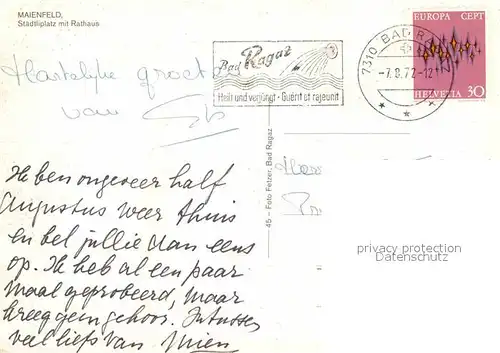 MAIENFELD,
Stadtliplatz mit Rathaus
Bad Ragaz
Heilt und verjüngt · Guérit et rajeunit
7310 BAD R
-7.8.72-12
EUROPA CEPT
HELVETIA 30
Hartelijke groeten
van
45 - Foto Fetzer, Bad Ragaz
privacy protection
Datenschutz
Ik ben ongeveer half
Augustus weer thuis
en bel jullie dan eens
op. Ik heb al een paar
maal geprobeerd, maar
kreeg geen gehoor. Intussen
veel liefs van Mien